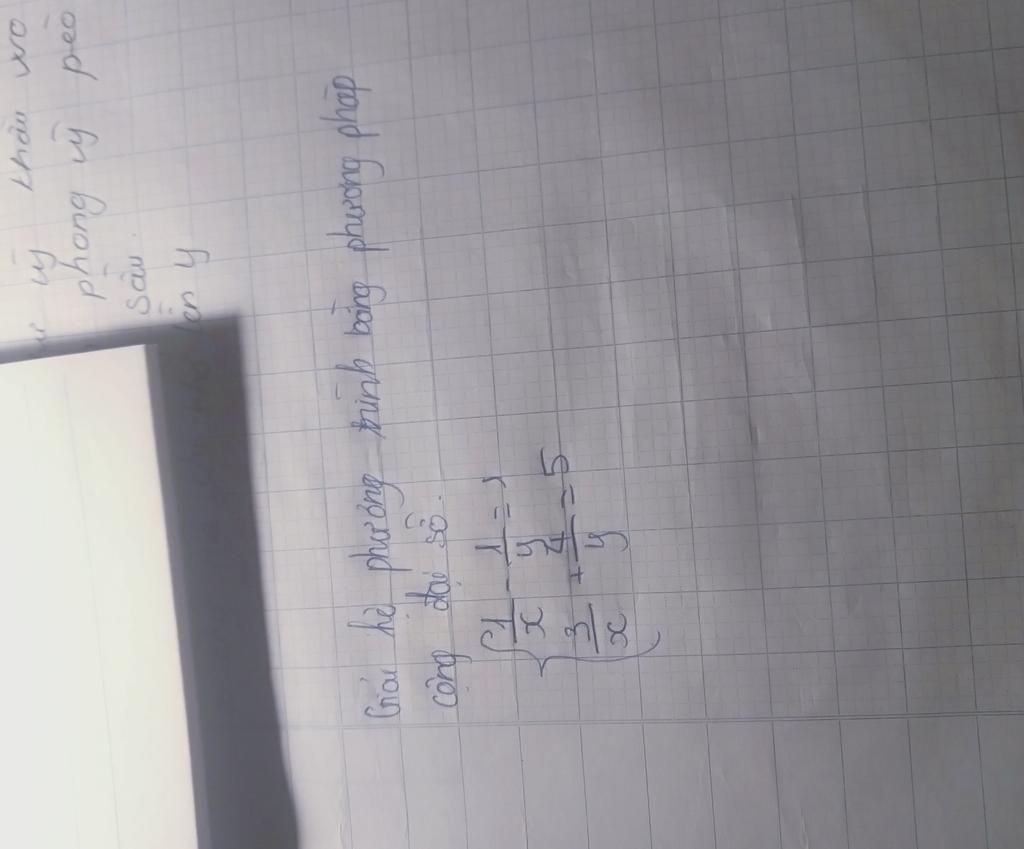 khán vào
vỹ phong vỹ pèo
sâu.
lên y
Giải hệ phương trình bằng phương pháp
cộng đại số.
{ 1/x - 1/y = 1
3/x + 4/y = 5